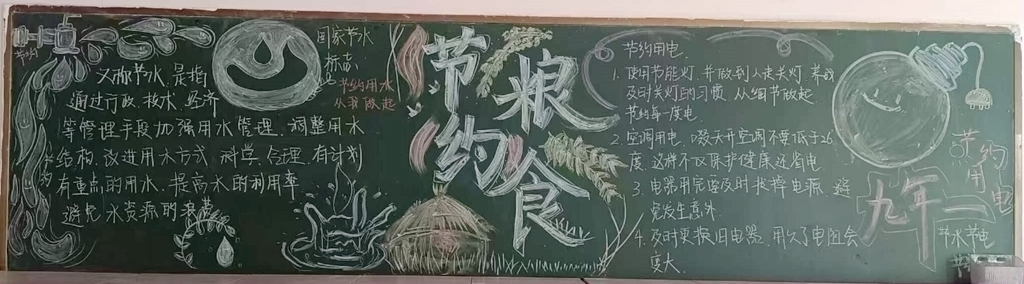 节约
又称节水，是指
通过行政、技术、经济
等管理手段加强用水管理，调整用水
结构，改进用水方式，科学、合理、有计划
有重点的用水，提高水的利用率
避免水资源的浪费
国家节水
标志
节约用水
从我做起
节约粮食
节约用电
1. 使用节能灯，并做到人走关灯，养成
及时关灯的习惯，从细节做起
节约每一度电
2. 空调用电，夏天开空调不要低于26
度，这样不仅保护健康还省电
3. 电器用完要及时拔掉电源，避
免发生意外
4. 及时更换旧电器，用久了电阻会
变大
节约
用
电
九年一
节水节电